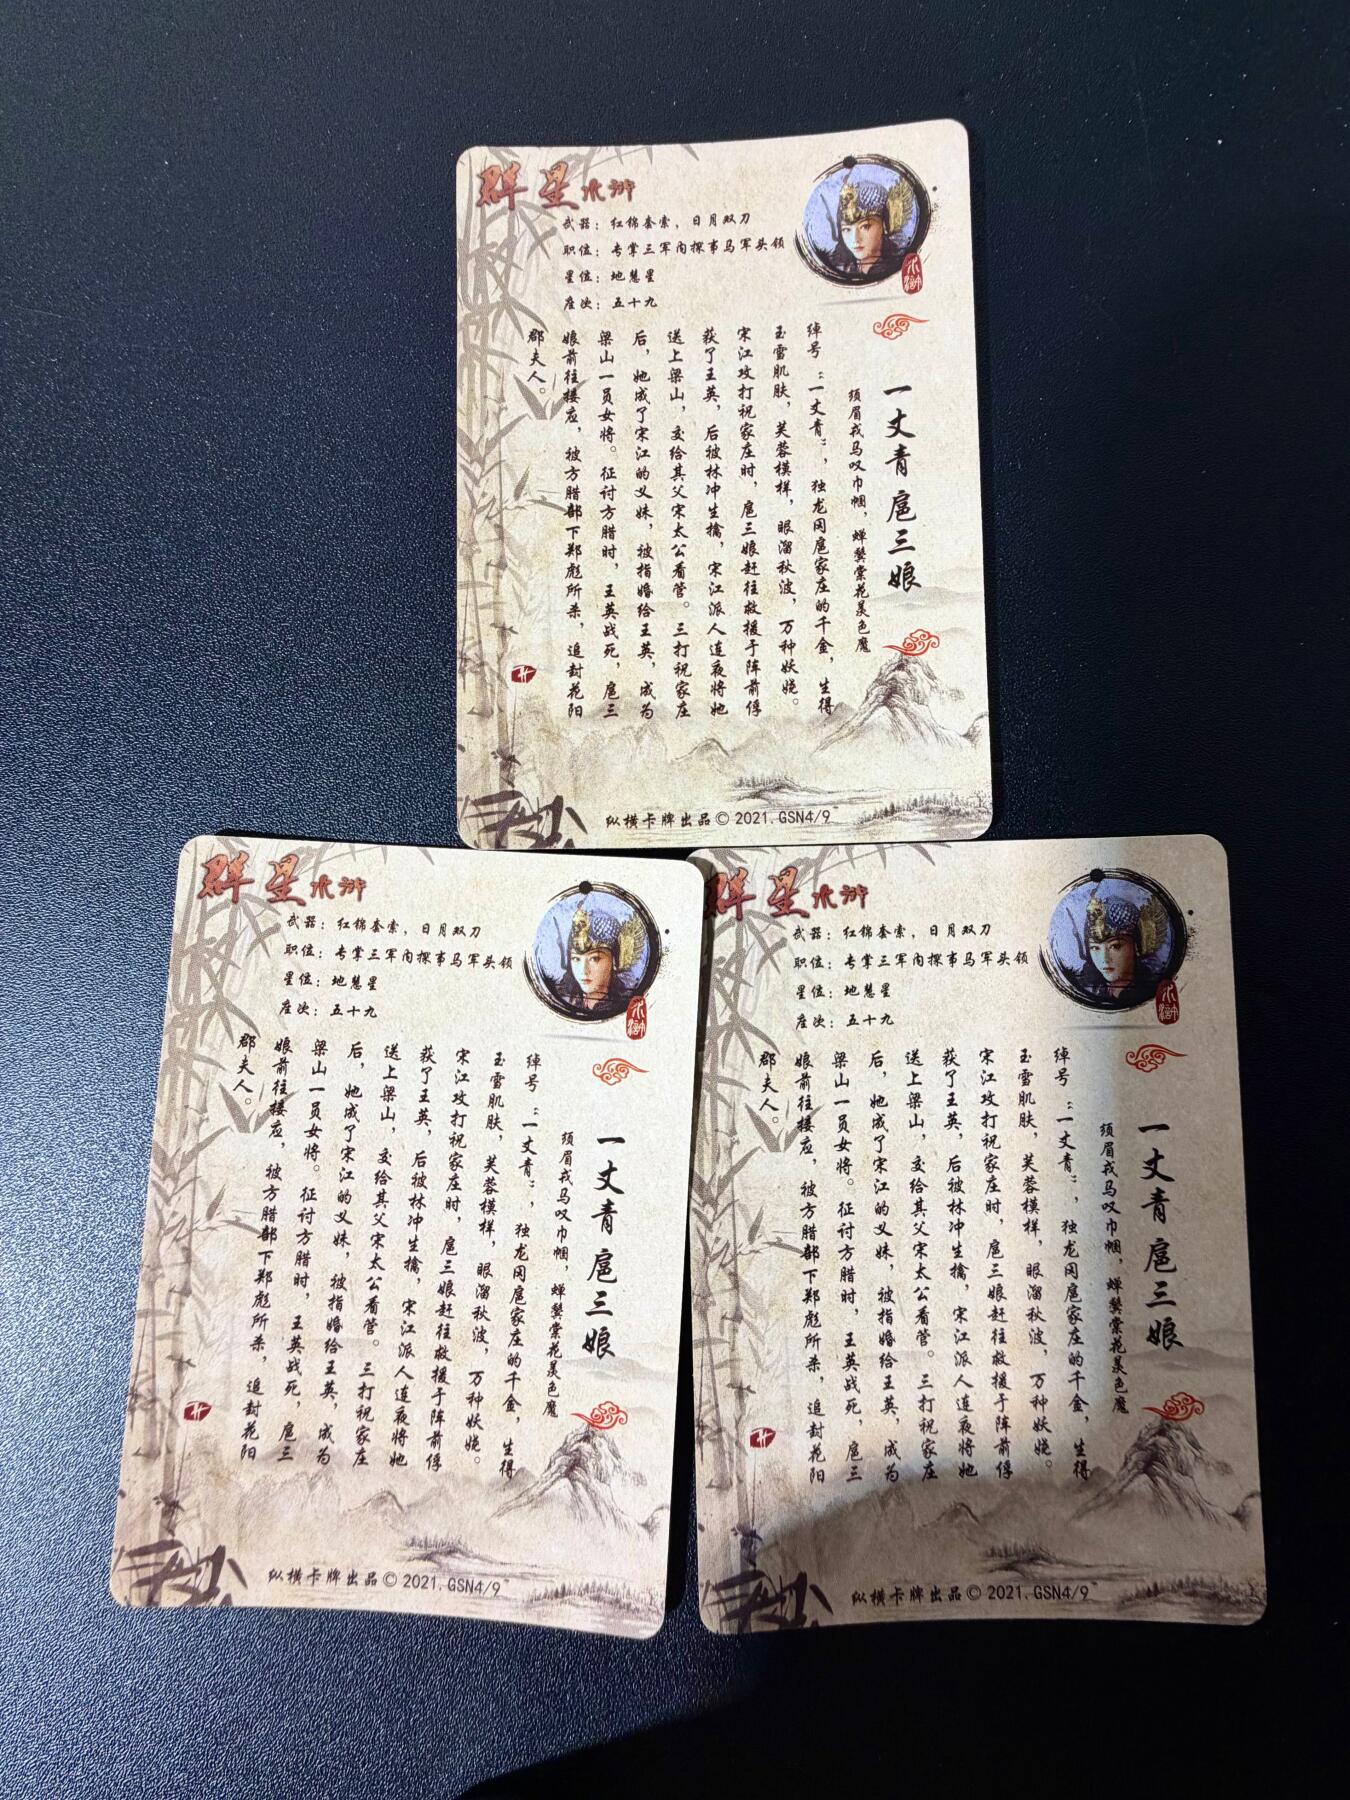 群星水浒
武器：红锦套索，日月双刀
职位：专掌三军内探事马军头领
星位：地慧星
座次：五十九
水浒
一丈青 扈三娘
须眉戎马叹巾帼，蝉鬓棠花羡色魔
绰号：“一丈青”，独龙冈扈家庄的千金，生得
玉雪肌肤，芙蓉模样，眼溜秋波，万种妖娆。
宋江攻打祝家庄时，扈三娘赶往救援于阵前俘
获了王英，后被林冲生擒，宋江派人连夜将她
送上梁山，交给其父宋太公看管。三打祝家庄
后，她成了宋江的义妹，被指婚给王英，成为
梁山一员女将。征讨方腊时，王英战死，扈三
娘前往接应，被方腊部下郑彪所杀，追封花阳
郡夫人。
纵横卡牌出品©2021.GSN4/9
群星水浒
武器：红锦套索，日月双刀
职位：专掌三军内探事马军头领
星位：地慧星
座次：五十九
水浒
一丈青 扈三娘
须眉戎马叹巾帼，蝉鬓棠花羡色魔
绰号：“一丈青”，独龙冈扈家庄的千金，生得
玉雪肌肤，芙蓉模样，眼溜秋波，万种妖娆。
宋江攻打祝家庄时，扈三娘赶往救援于阵前俘
获了王英，后被林冲生擒，宋江派人连夜将她
送上梁山，交给其父宋太公看管。三打祝家庄
后，她成了宋江的义妹，被指婚给王英，成为
梁山一员女将。征讨方腊时，王英战死，扈三
娘前往接应，被方腊部下郑彪所杀，追封花阳
郡夫人。
纵横卡牌出品©2021.GSN4/9
群星水浒
武器：红锦套索，日月双刀
职位：专掌三军内探事马军头领
星位：地慧星
座次：五十九
水浒
一丈青 扈三娘
须眉戎马叹巾帼，蝉鬓棠花羡色魔
绰号：“一丈青”，独龙冈扈家庄的千金，生得
玉雪肌肤，芙蓉模样，眼溜秋波，万种妖娆。
宋江攻打祝家庄时，扈三娘赶往救援于阵前俘
获了王英，后被林冲生擒，宋江派人连夜将她
送上梁山，交给其父宋太公看管。三打祝家庄
后，她成了宋江的义妹，被指婚给王英，成为
梁山一员女将。征讨方腊时，王英战死，扈三
娘前往接应，被方腊部下郑彪所杀，追封花阳
郡夫人。
纵横卡牌出品©2021.GSN4/9